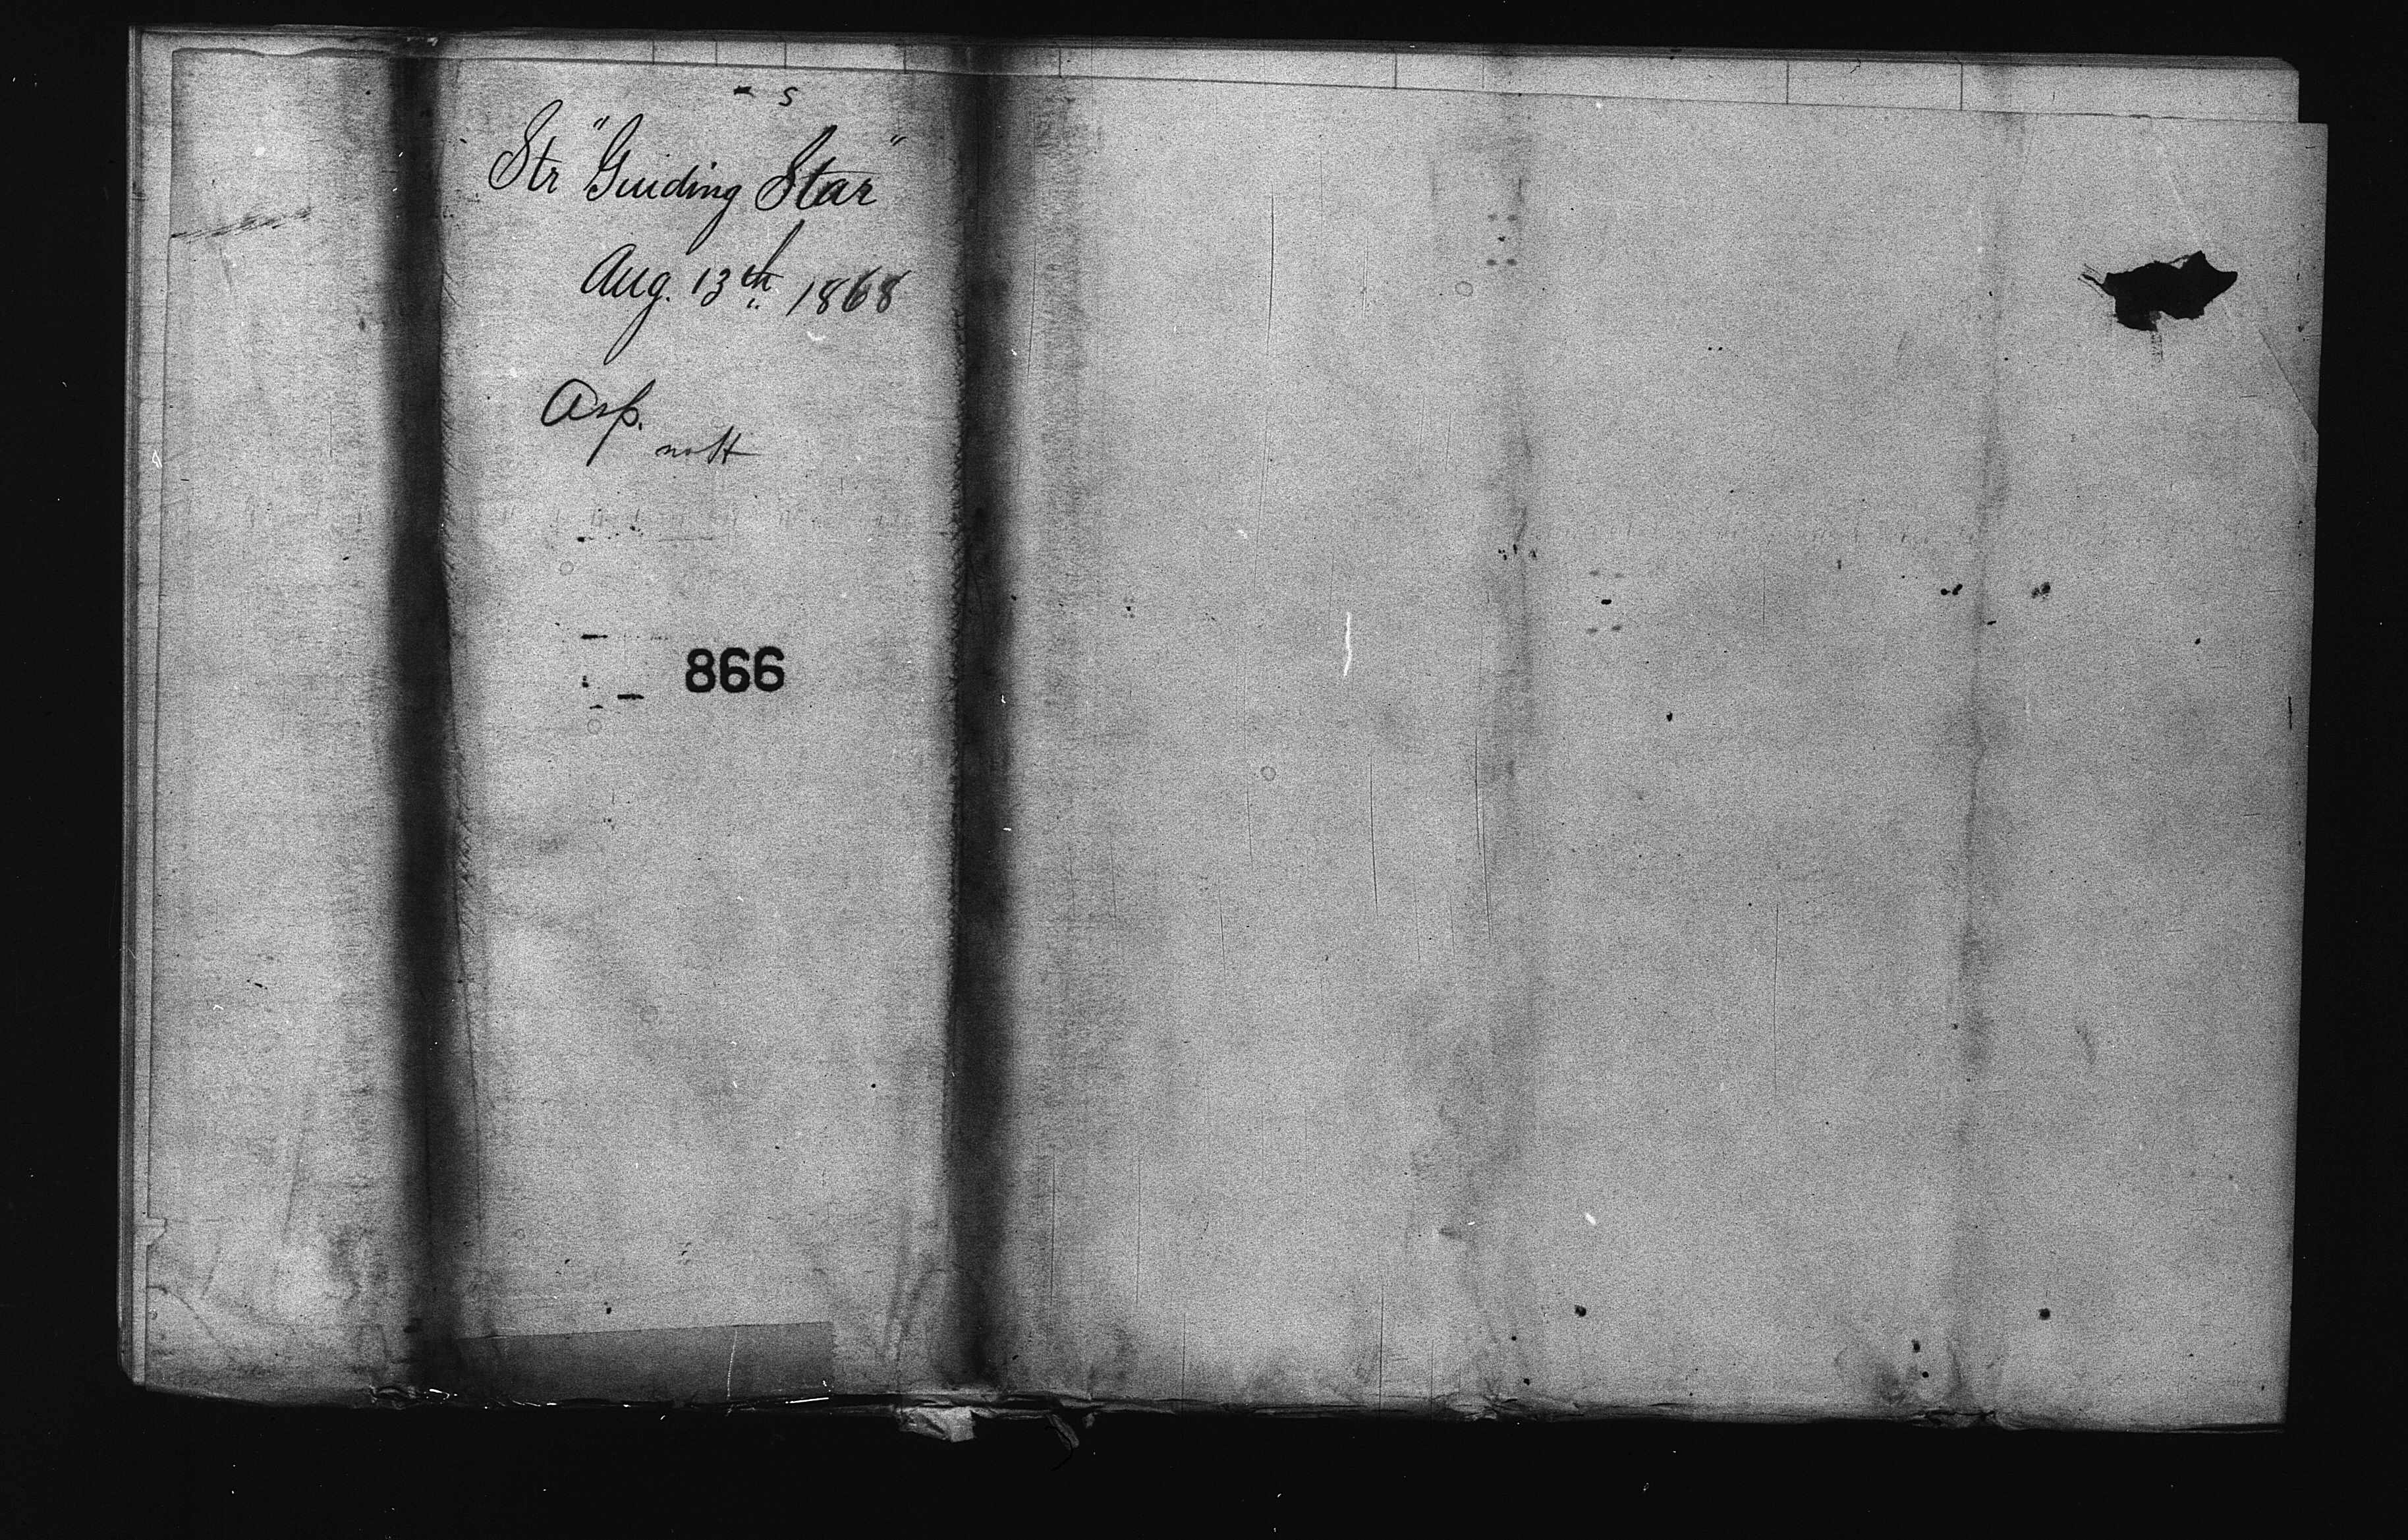 s
Str "Guiding Star"
Aug. 13th 1868
Asp.
nott
866